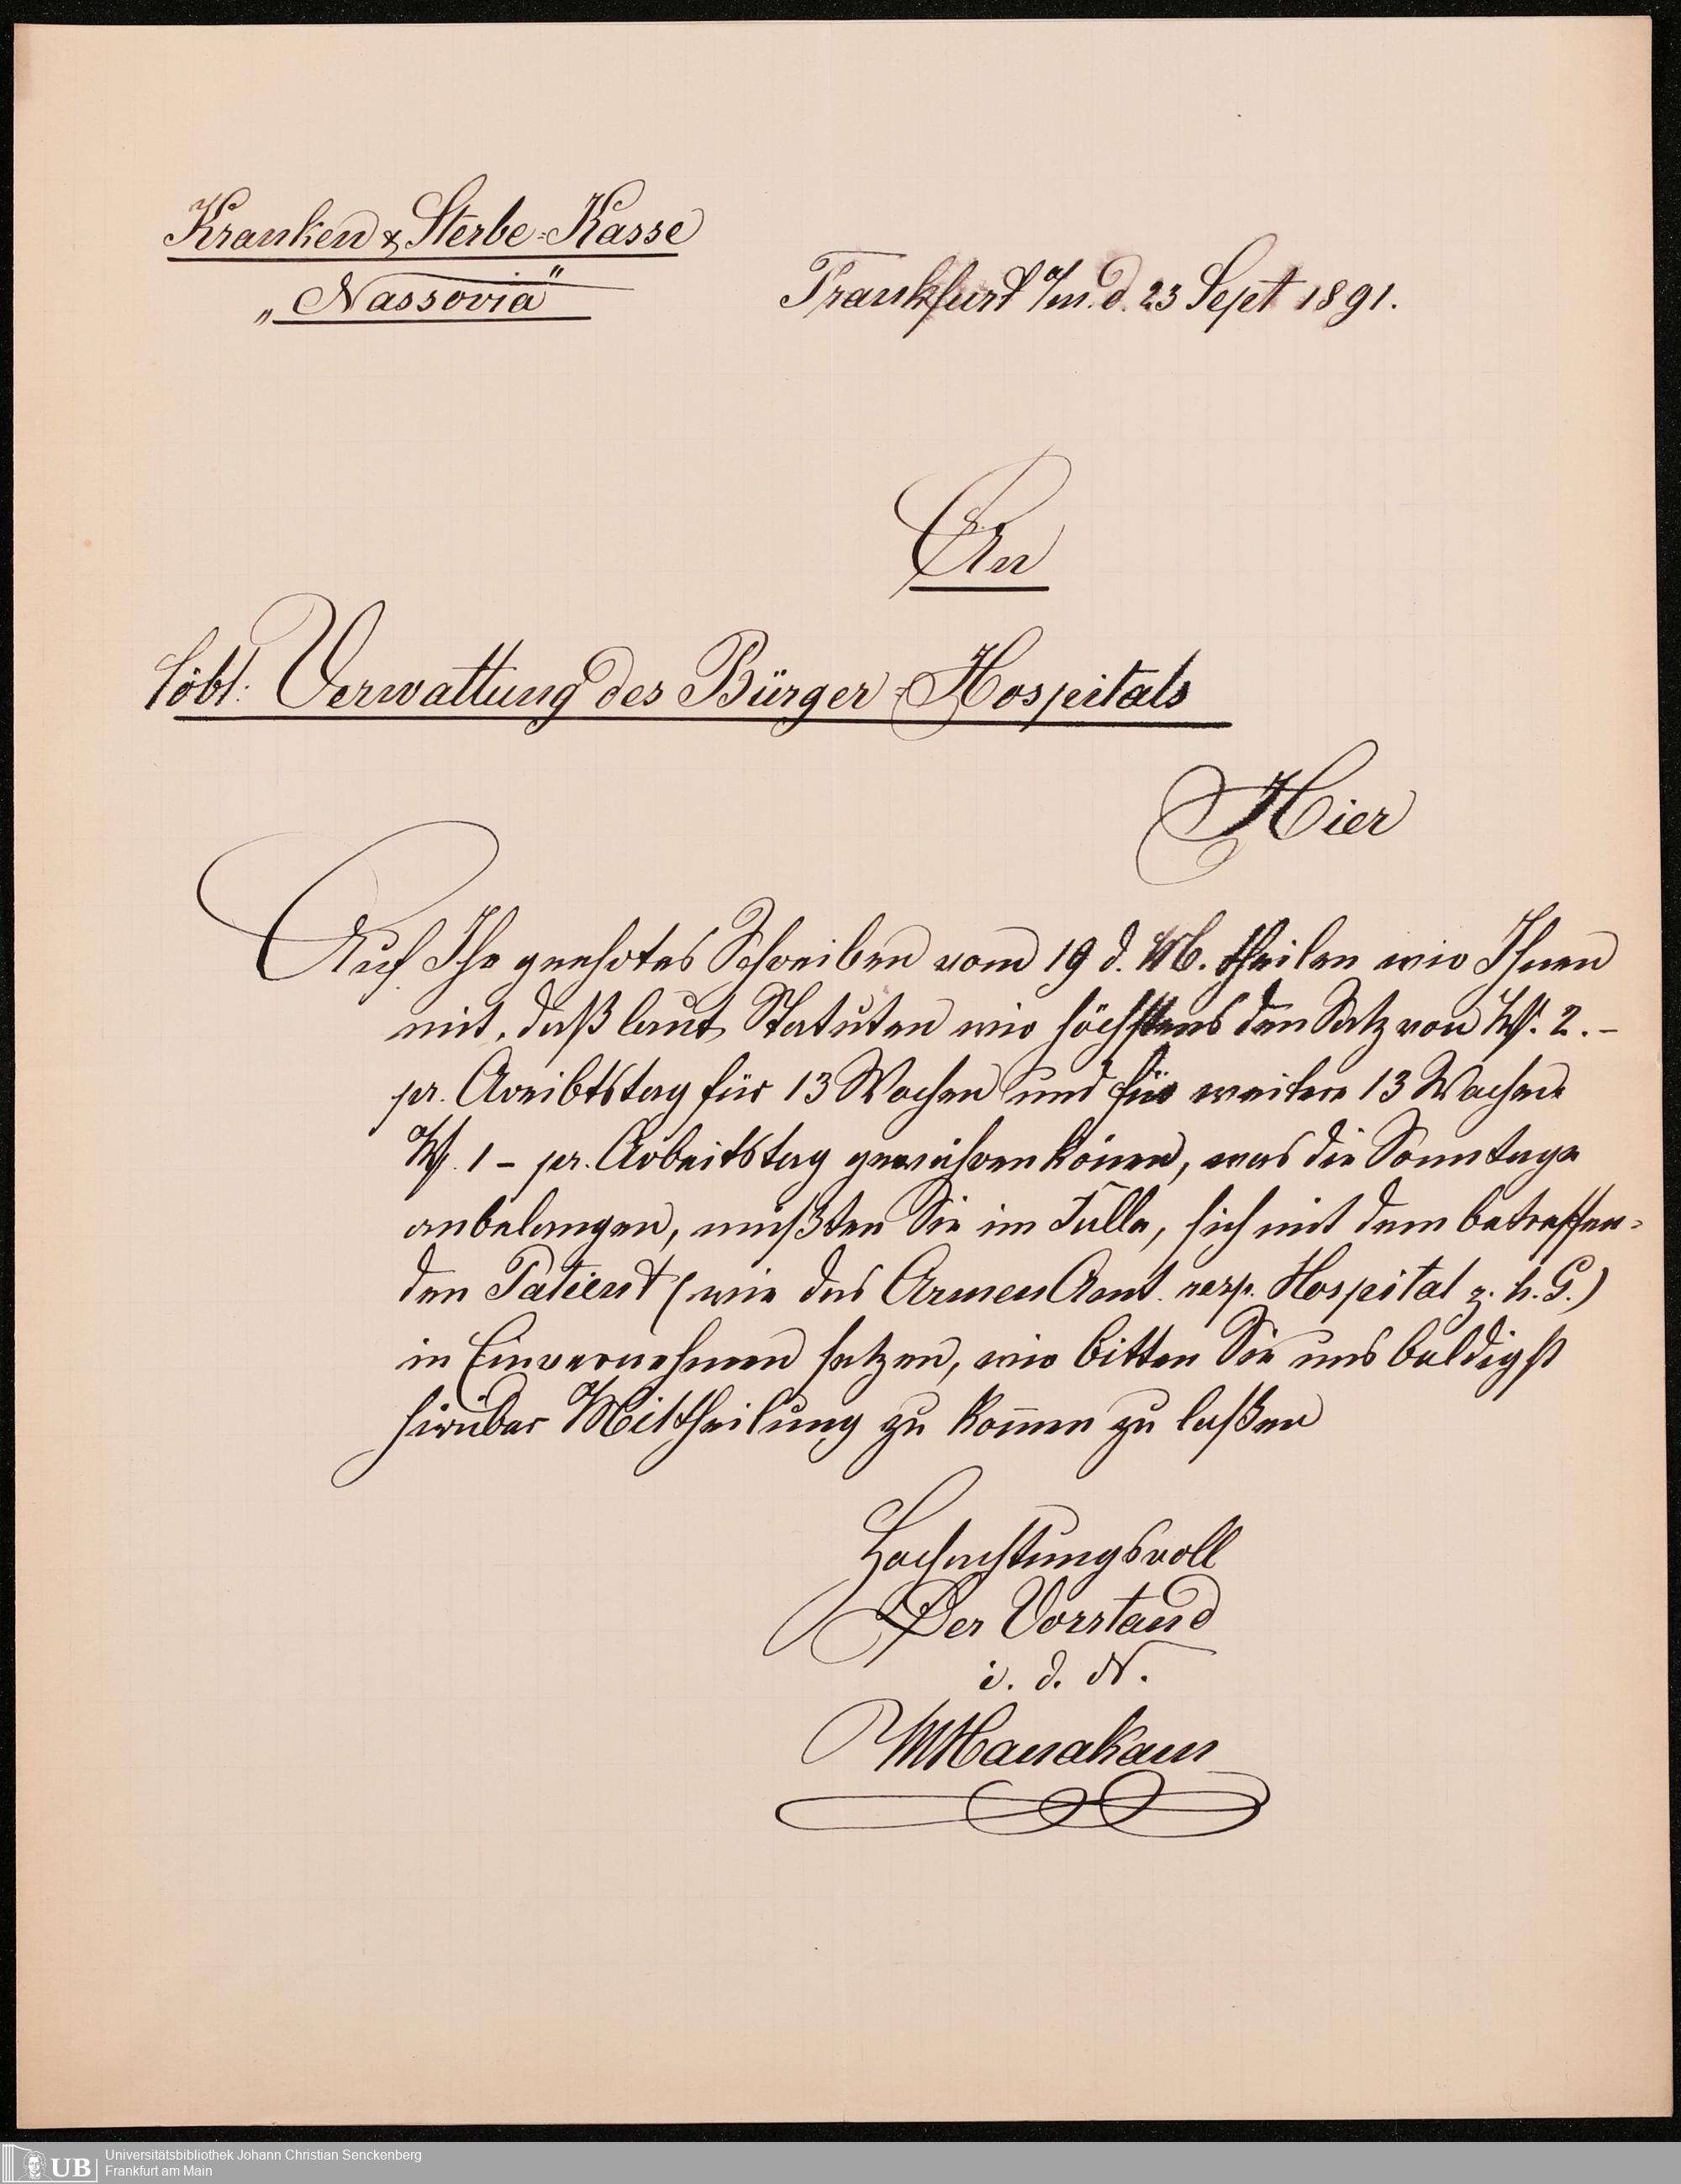 Kranken & Sterbe-Kasse
„Nassovia"
Frankfurt a/m. d. 23 Sept 1891.
An
löbl: Verwaltung des Bürger-Hospitals
Hier
Auf Ihr geehrtes Schreiben vom 19 d. Mts. theilen wir Ihnen
mit, daß laut Statuten wir höchstens den Satz von M. 2.–
pr. Areibtstag für 13 Wochen und für weitere 13 Wochen
M. 1 – pr. Arbeitstag gewähren könen, was die Sonntage
anbelangen, müßten Sie im Falle, sich mit dem betreffen-
den Patient (wie das Armen Amt. resp. Hospital z. h. G.)
in Einvernehmen setzen, wir bitten Sie uns baldigst
hirüber Mittheilung zu kom̅en zu laßen
Hochachtungsvoll
Der Vorstand
d. N.
UB
Universitätsbibliothek Johann Christian Senckenberg
Frankfurt am Main